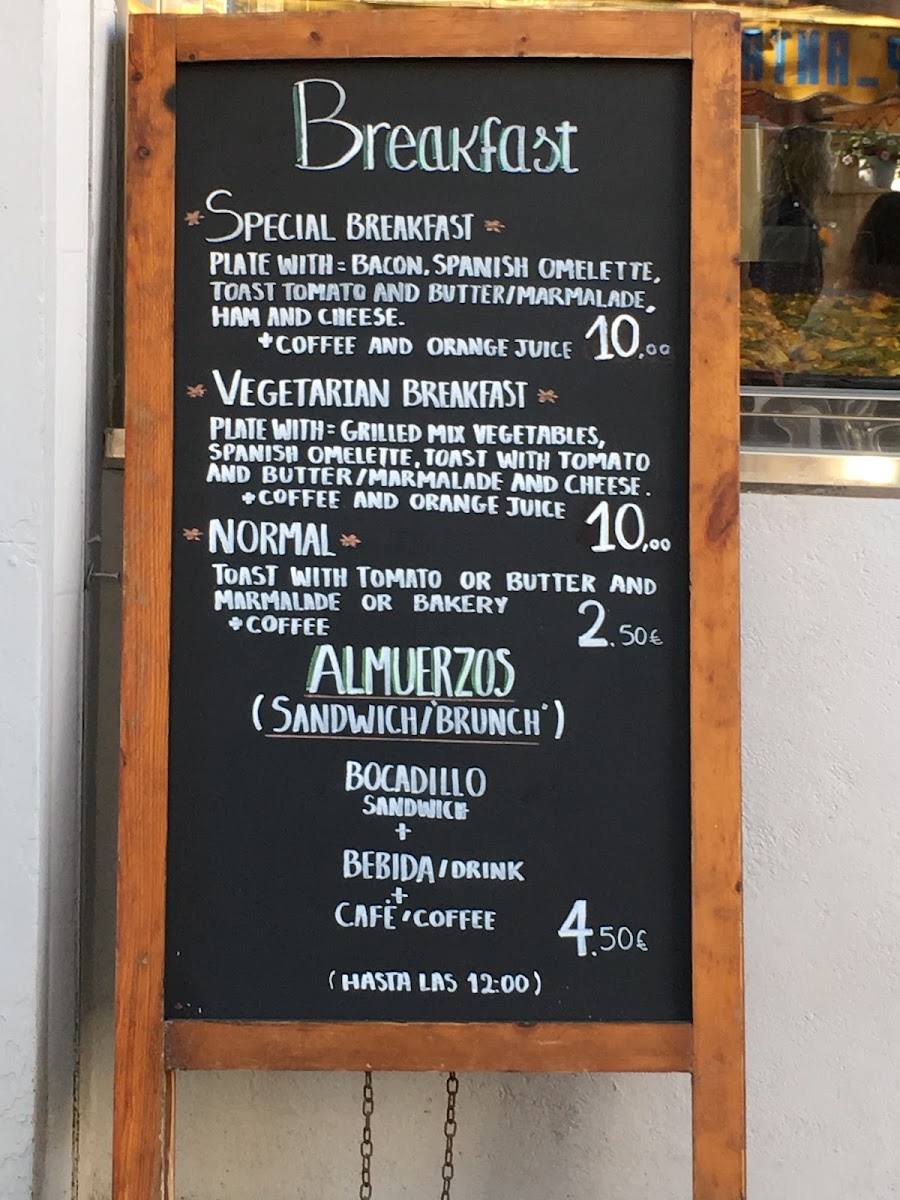 Breakfast
* SPECIAL BREAKFAST *
PLATE WITH = BACON, SPANISH OMELETTE,
TOAST TOMATO AND BUTTER/MARMALADE,
HAM AND CHEESE.
+COFFEE AND ORANGE JUICE 10,00
* VEGETARIAN BREAKFAST *
PLATE WITH = GRILLED MIX VEGETABLES,
SPANISH OMELETTE, TOAST WITH TOMATO
AND BUTTER/MARMALADE AND CHEESE.
+COFFEE AND ORANGE JUICE 10,00
* NORMAL *
TOAST WITH TOMATO OR BUTTER AND
MARMALADE OR BAKERY
+COFFEE 2.50€
ALMUERZOS
(SANDWICH/"BRUNCH")
BOCADILLO
SANDWICH
+
BEBIDA/DRINK
+
CAFÉ/COFFEE 4.50€
(HASTA LAS 12:00)